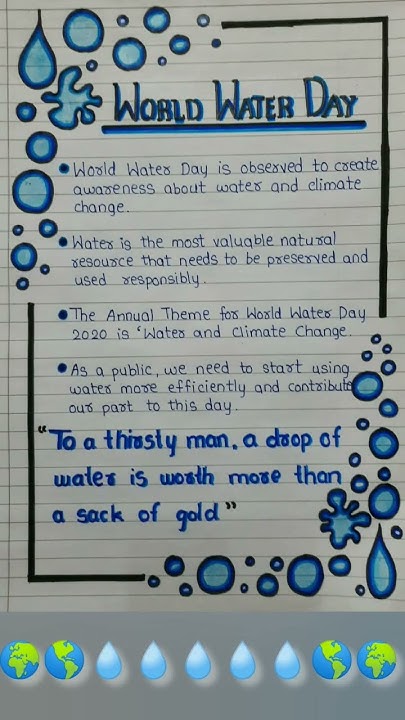 WORLD WATER DAY
• World Water Day is observed to create
awareness about water and climate
change.
• Water is the most valuable natural
resource that needs to be preserved and
used responsibly.
• The Annual Theme for World Water Day
2020 is ‘Water and Climate Change.
• As a public, we need to start using
water more efficiently and contribute
our part to this day.
“To a thirsty man, a drop of
water is worth more than
a sack of gold”